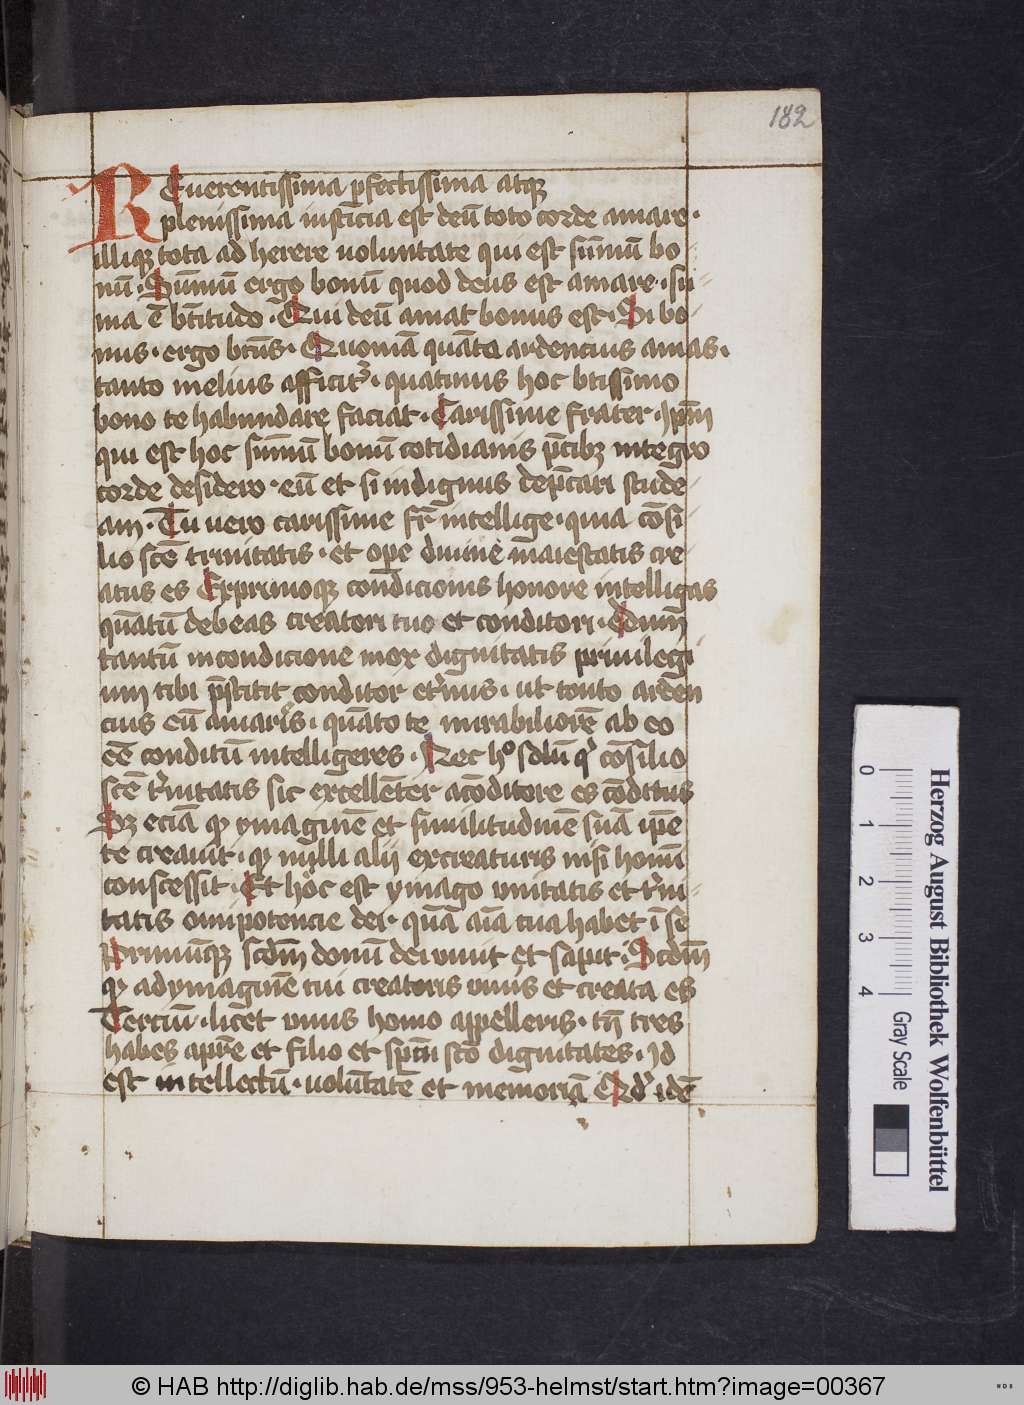 182
REuerentissima perfectissima atqꝫ
plenissima iusticia est deū toto corde amare·
illiqꝫ tota ad herere uoluntate qui est sūmū bo
nū· Sūmū ergo bonū quod deus est amare· su
ma ē btītudo· Qui deū amat bonus est· Si bo
nus· ergo btūs· Quoniā quāto ardencius amas·
tanto melius afficitr· quatinus hoc btissimo
bono te habundare faciat· Carissime frater· Ipm̄
qui est hoc sūmū bonū cotidianis p̄cibꝫ integro
corde desidero· eū et si indignus dep̄cari stude
am· Tu uero carissime fr̄ intellige· quia cōsi
lio scē trinitatis· et ope diuine maiestatis cre
atus es Exprimoqꝫ condicionis honore intelligas
quātū debeas creatori tuo et conditori·
tantū in condicione mox dignitatis priuilegi
um tibi p̄stitit conditor etr̄nus· ut tonto arden
cius eū amares· quāto te mirabiliorē ab eo
eē conditū intelligeres· Nec ho solū qr cōsilio
scē tr̄initatis sic excellēter acōditore es cōditus
Sꝫ eciā qꝫ ymaginē et similitudinē suā ipse
te creauit· qꝫ nulli alij excreaturis nisi homī
conscessit· Et hoc est ymago unitatis et tr̄ini
tatis omipotencie dei· quā aīa tua habet ī se
Primūqꝫ scdm̄ donū dei uiuit et sapit· Scdm̄
qꝫ ad ymaginē tui creatoris unus et creata es
Terciū· licet unus homo appelleris· tn̄ tres
habes apr̄e et filio et spū sco dignitates· Id
est intellectū· uolūtatē et memoriā Qd' idē
Herzog August Bibliothek Wolfenbüttel
0 1 2 3 4
Gray Scale
© HAB http://diglib.hab.de/mss/953-helmst/start.htm?image=00367